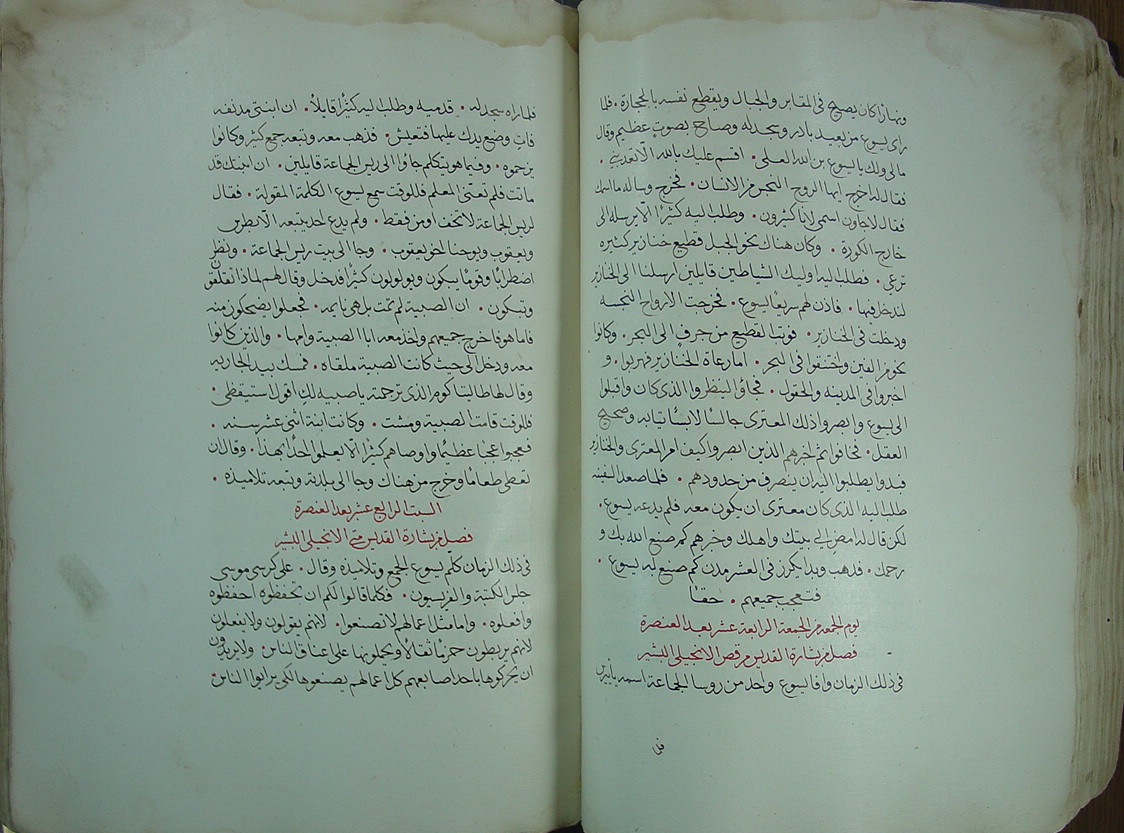 ونهارًا كان يصيح في المقابر والجبال ويقطع نفسه بالحجارة. فلما
راى يسوع من بعيد بادر وسجد له وصاح بصوت عظيم وقال
مالي ولك يا يسوع بن الله العلي. اقسم عليك بالله الا تعذبني.
فقال له اخرج ايها الروح النجس من الانسان. فخرج وساله ما اسمك
فقال لاجاون اسمي لاننا كثيرون. وطلب اليه كثيرًا الا يرسله الى
خارج الكورة. وكان هناك نحو الجبل قطيع خنازير كثيره
ترعى. فطلب اليه اوليك الشياطين قايلين ارسلنا الى الخنازير
لندخل فيها. فاذن لهم سريعًا يسوع. فخرجت الارواح النجسه
ودخلت في الخنازير. فوثب القطيع من جرف الى البحر. وكانوا
نحو من الفين واختنقوا في البحر. اما رعاة الخنازير فهربوا. و
اخبروا في المدينه والحقول. فجاؤا لينظروا الذي كان واقبلوا
الى يسوع وابصروا ذلك المعترى جالسًا لابسًا ثيابه وصحيح
العقل. فخافوا ثم اخبرهم الذين ابصروا كيف امر المعترى والخنازير
فبدوا يطلبوا اليه ان ينصرف من حدودهم. فلما صعد السفينه
طلب اليه الذي كان معترى ان يكون معه فلم يدعه يسوع.
لكن قال له امضِ الى بيتك واهلك وخبرهم كم صنع الله بك و
رحمك. فذهب وبدا يكرز في العشر مدن كم صنع به يسوع.
فتعجب جميعهم. حقًا
يوم الجمعه من الجمعة الرابعة عشر بعد العنصرة
فصل من بشارة القديس مرقص الانجيلي البشير
في ذلك الزمان وافا ليسوع واحد من روسا الجماعة اسمه يايرس
فلما
فلما راه سجد له. قدميه وطلب اليه كثيرًا قايلاً. ان ابنتي مدنفه
فاتِ وضع يدك عليها فتعيش. فذهب معه وتبعه جمع كثير وكانوا
يزحموه. وفيما هو يتكلم جاوا الى ريس الجماعة قايلين. ان ابنتك قد
ماتت فلم تعنّى المعلم فللوقت سمع يسوع الكلمة المقولة. فقال
لريس الجماعة لا تخف اومن فقط. ولم يدع احد يتبعه الا بطرس
ويعقوب ويوحنا اخو يعقوب. وجا الى بيت ريس الجماعة. ونظر
اضطرابًا وقومًا يبكون ويولولون كثيرًا فدخل وقال لهم لماذا تقلقون
وتبكون. ان الصبية لم تمت بل هي نايمه. فجعلوا يضحكون منه
فاما هو فاخرج جميعهم واخذ معه ابا الصبية وامها. والذين كانوا
معه ودخل الى حيث كانت الصبية ملقاه. فمسك بيد الجاريه
وقال لها طاليثا كوم الذي ترجمة يا صبيه لك اقول استيقظي.
فللوقت قامت الصبية ومشت. وكانت ابنة اثنى عشر سنه.
فعجبوا عجبًا عظيمًا واوصاهم كثيرًا الا يعلموا احدًا بهذا. وقال ان
تعطى طعامًا وخرج من هناك وجا الى بلدته وتبعه تلاميذه.
السبت الرابع عشر بعد العنصرة
فصل من بشارة القديس متى الانجيلي البشير
في ذلك الزمان كلّم يسوع الجمع وتلاميذه وقال. على كرسي موسى
جلس الكتبة والفريسيون. فكلما قالوا لكم ان تحفظوه احفظوه
وافعلوه. واما مثل اعمالهم لا تصنعوا. لانهم يقولون ولا يفعلون
لانهم يربطون حزمًا ثقالًا ويحملونها على اعناق الناس. ولا يريدون
ان يحركوها باحد اصابعهم كل اعمالهم يصنعوها لكي يرايوا الناس.